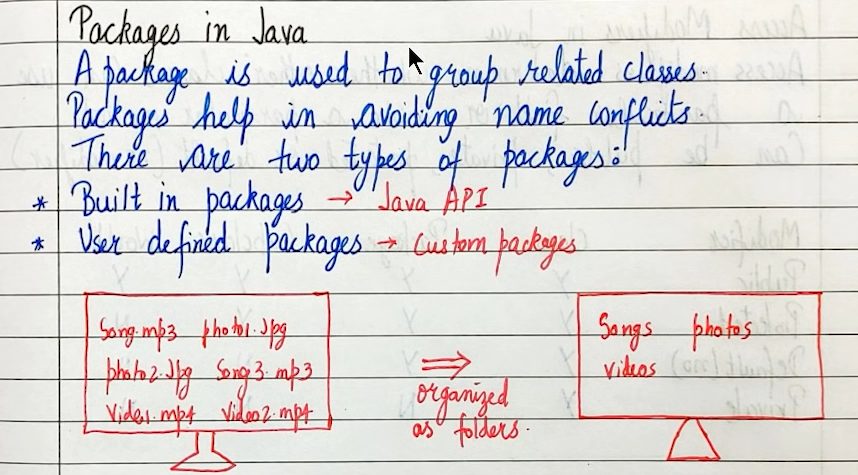 Packages in Java
A package is used to group related classes.
Packages help in avoiding name conflicts.
There are two types of packages:
* Built in packages → Java API
* User defined packages → Custom packages
Song.mp3 photo1.Jpg
photo2.Jpg Song3.mp3
Vide1.mp4 Video2.mp4
⇒
organized
as folders.
Songs photos
videos